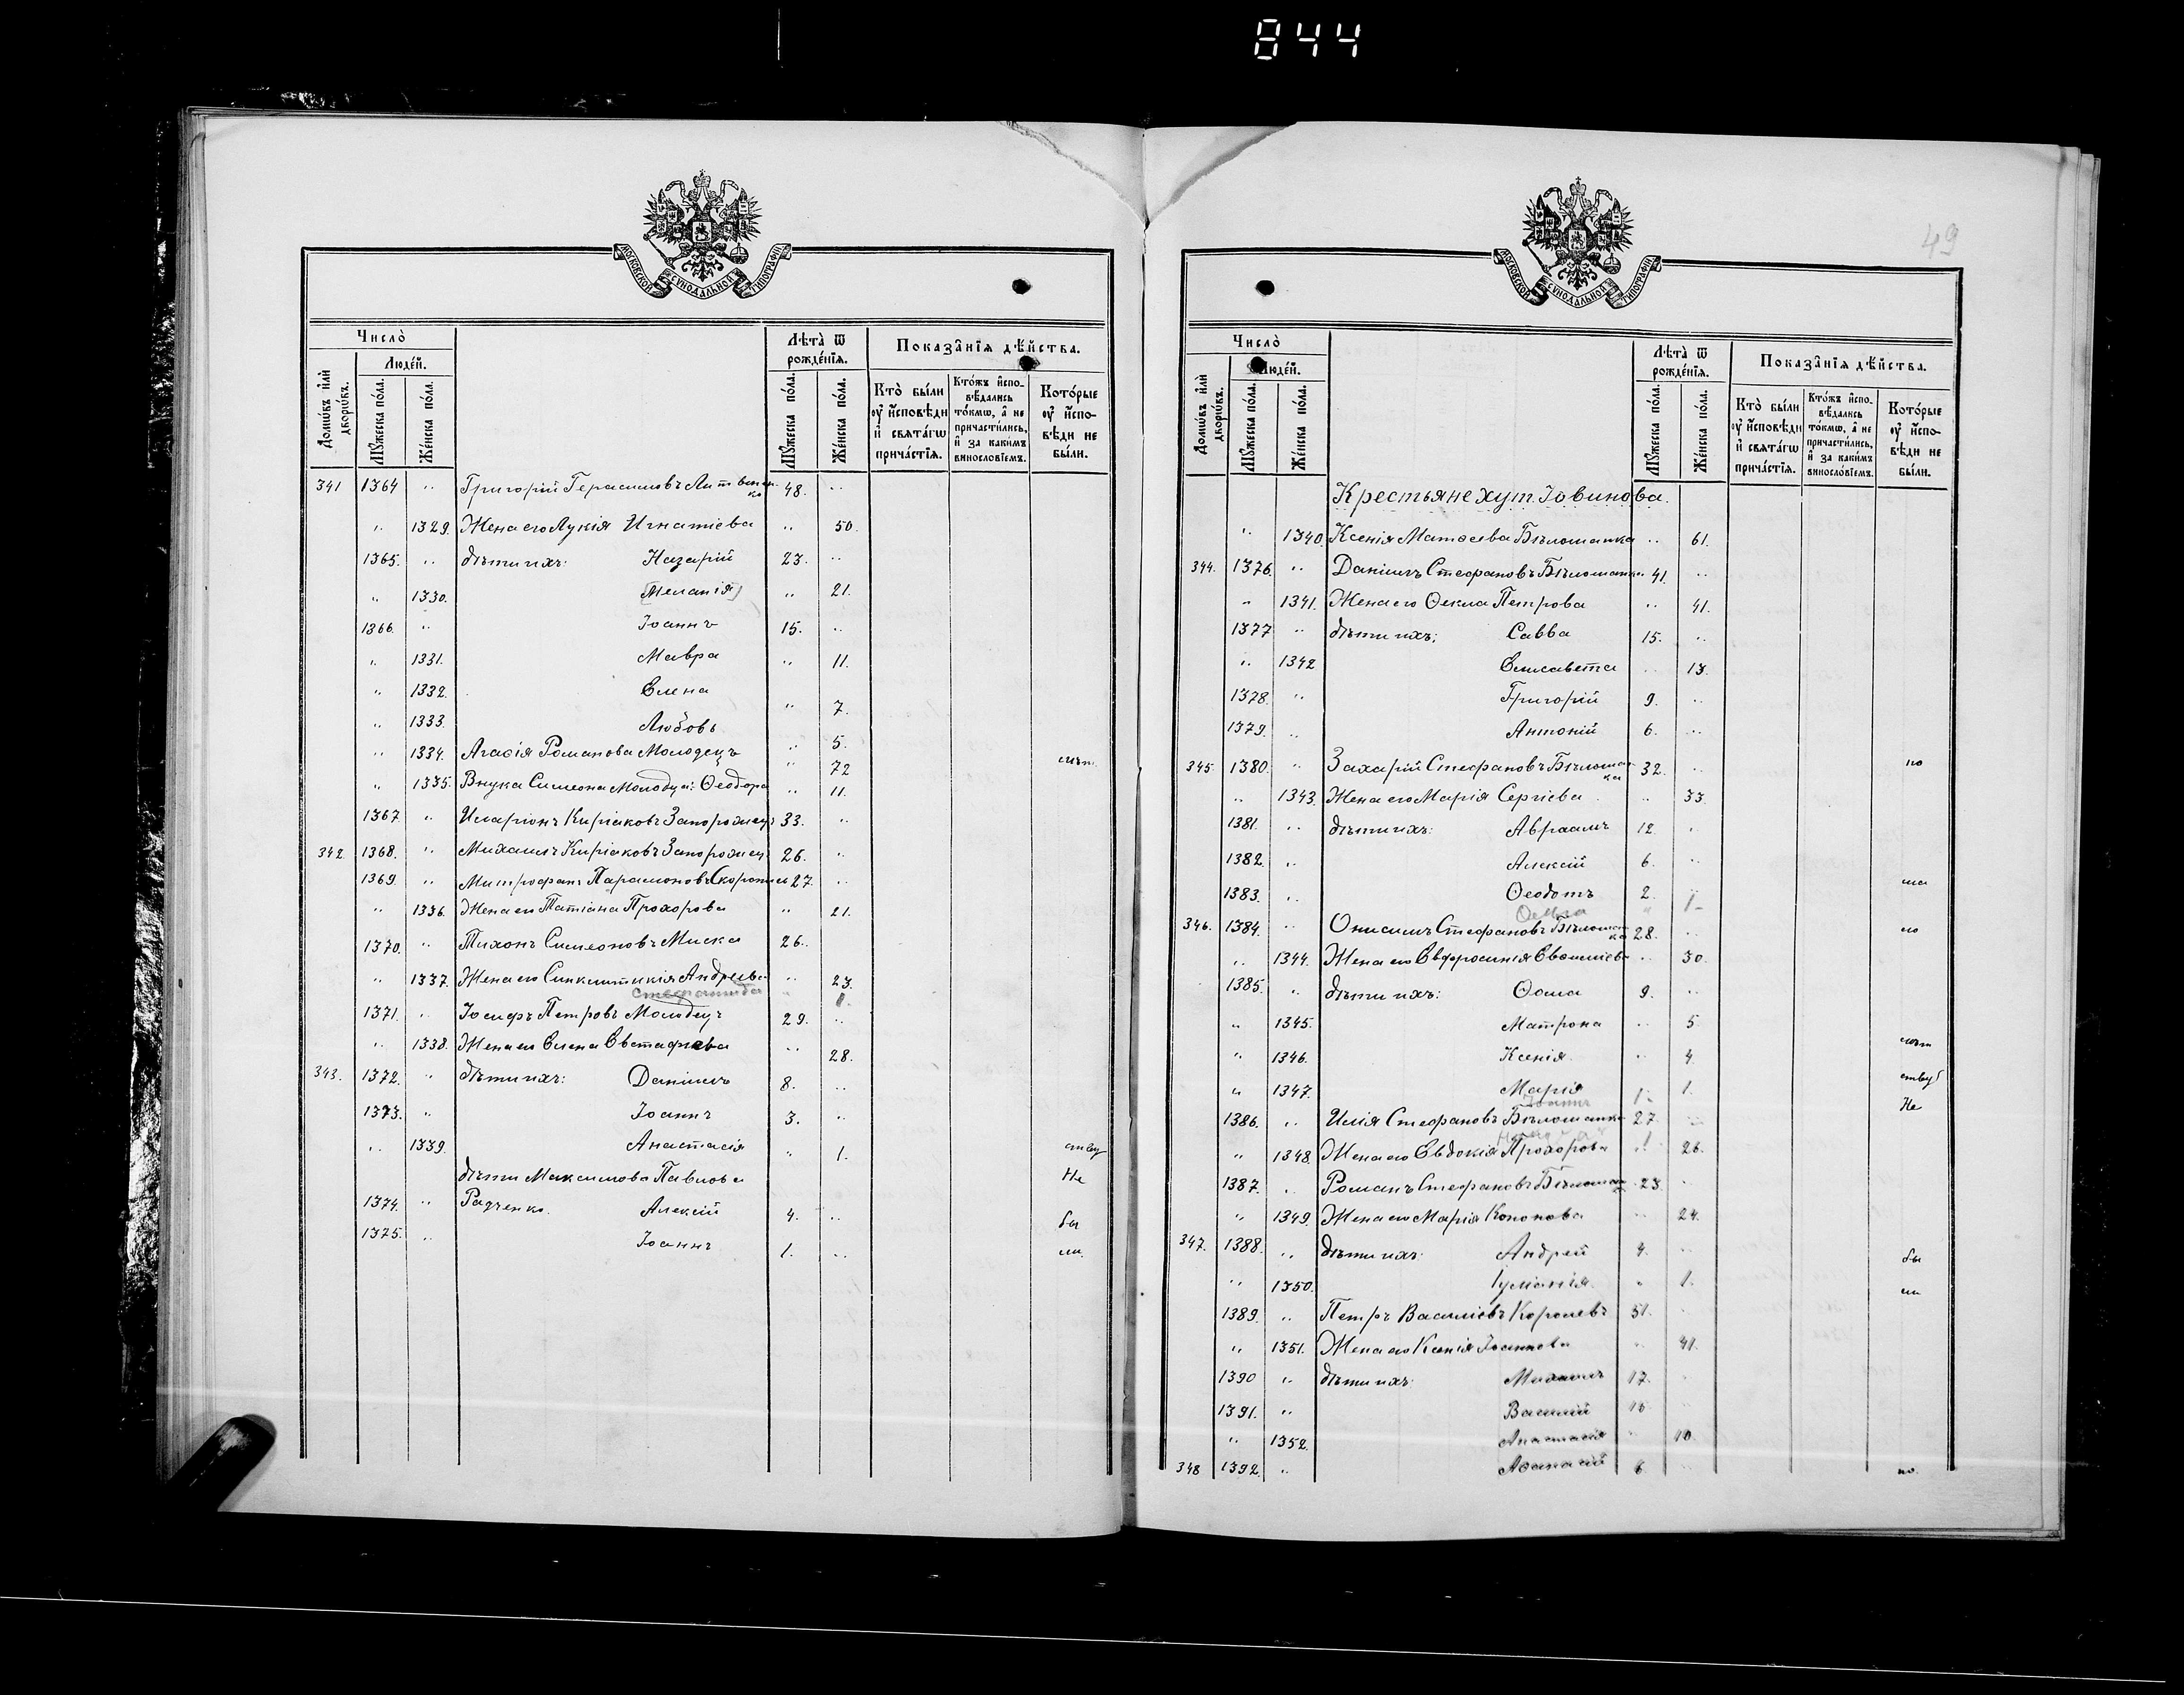 844
МОСКОВСКОЙ СѴНОДАЛЬНОЙ ТИПОГРАФІИ
Число̀
Люде́й.
Домѡ́въ и҆лѝ дворѡ́въ.
Мꙋ́жеска по́ла.
Же́нска по́ла.
Лѣ́та ѿ рожде́нїѧ.
Мꙋ́жеска по́ла.
Же́нска по́ла.
Показа̑нїѧ дѣ́йства.
Кто̀ бы́ли ᲂу҆ и҆сповѣ́ди и҆ свѧта́гѡ прича́стїѧ.
Кто́жъ и҆сповѣ́дались то́кмѡ, а҆ не причасти́лись, и҆ за каки́мъ винослові́емъ.
Кото́рые ᲂу҆ и҆сповѣ́ди не бы́ли.
341 1364 „ Григорій Герасимовъ Литвиненко 48. „
„ 1329. Жена его Лукія Игнатіева „ 50.
1365. „ дѣти ихъ: Назарій 23. „
„ 1330. [Меланія] „ 21.
1366. „ Іоаннъ 15. „
„ 1331. Мавра „ 11.
„ 1332. Елена „ 7.
„ 1333. Любовь „ 5.
„ 1334. Агафія Романова Молодецъ „ 72
„ 1335. Внука Симеона Молодца: Ѳеодора „ 11.
1367 „ Иларіонъ Киріаковъ Запорожец 33. „
342 1368. „ Михаилъ Киріаковъ Запорожец 26. „
1369. „ Митрофанъ Парамоновъ 27. „
„ 1336. Жена его Татіана Прохорова „ 21.
1370. „ Тихонъ Симеоновъ Миска 26. „
„ 1337. Жена его Синклитикія Андреева „ 23.
Стефанида „ 1.
1371. „ Іосифъ Петровъ Молодецъ 29. „
„ 1338. Жена его Елена Евстафіева „ 28.
343. 1372. „ дѣти ихъ: Даніилъ 8. „
1373. „ Іоаннъ 3. „
„ 1339. Анастасія „ 1. ству
дѣти Максимова Павлова Не
1374. „ Радченко. Алексій 4. „ бы
1375. „ Іоаннъ 1. „ ли.
49
МОСКОВСКОЙ СѴНОДАЛЬНОЙ ТИПОГРАФІИ
Число̀
Люде́й.
Домѡ́въ и҆лѝ дворѡ́въ.
Мꙋ́жеска по́ла.
Же́нска по́ла.
Лѣ́та ѿ рожде́нїѧ.
Мꙋ́жеска по́ла.
Же́нска по́ла.
Показа̑нїѧ дѣ́йства.
Кто̀ бы́ли ᲂу҆ и҆сповѣ́ди и҆ свѧта́гѡ прича́стїѧ.
Кто́жъ и҆сповѣ́дались то́кмѡ, а҆ не причасти́лись, и҆ за каки́мъ винослові́емъ.
Кото́рые ᲂу҆ и҆сповѣ́ди не бы́ли.
Крестьяне хут. Іовинова.
„ 1340. Ксенія Матѳеева Бѣломатка „ 61.
344. 1376. „ Даніилъ Стефановъ Бѣломатка 41. „
„ 1341. Жена его Ѳекла Петрова „ 41.
1377 „ дѣти ихъ: Савва 15. „
„ 1342 Елисавета „ 13.
1378. „ Григорій 9. „
1379. „ Антоній 6. „
345. 1380. „ Захарій Стефановъ Бѣломатка 32. „ по
„ 1343. Жена его Марія Сергіева „ 33.
1381. „ дѣти ихъ: Авраамъ 12. „
1382. „ Алексій 6. „
1383. „ Ѳеодотъ 2. „
346. 1384. „ Онисимъ Стефановъ Бѣломатка 28. „
„ 1344. Жена его Евфросинія „ 30.
1385. „ дѣти ихъ: Ѳома 9. „
„ 1345. Матрона „ 5
„ 1346. Ксенія „ 4.
„ 1347. Марія „ 1. ству
Іоаннъ 1. Не
1386. „ Илія Стефановъ Бѣломатка 27 „
„ 1348. Жена его Евдокія Прохорова „ 26.
1387. „ Романъ Стефановъ Бѣломатка 23. „
„ 1349. Жена его Марія Кононова „ 24.
347. 1388. „ дѣти ихъ: Андрей 4. „ бы
„ 1350. Іуліанія „ 1. ли
1389. „ Петръ Василіевъ Королевъ 51. „
„ 1351. Жена его Ксенія Іоаннова „ 41.
1390 „ дѣти ихъ: Михаилъ 17. „
1391. „ Василій „
„ 1352. Анастасія „ 10.
348 1392. „ Аѳанасій 6. „ по.